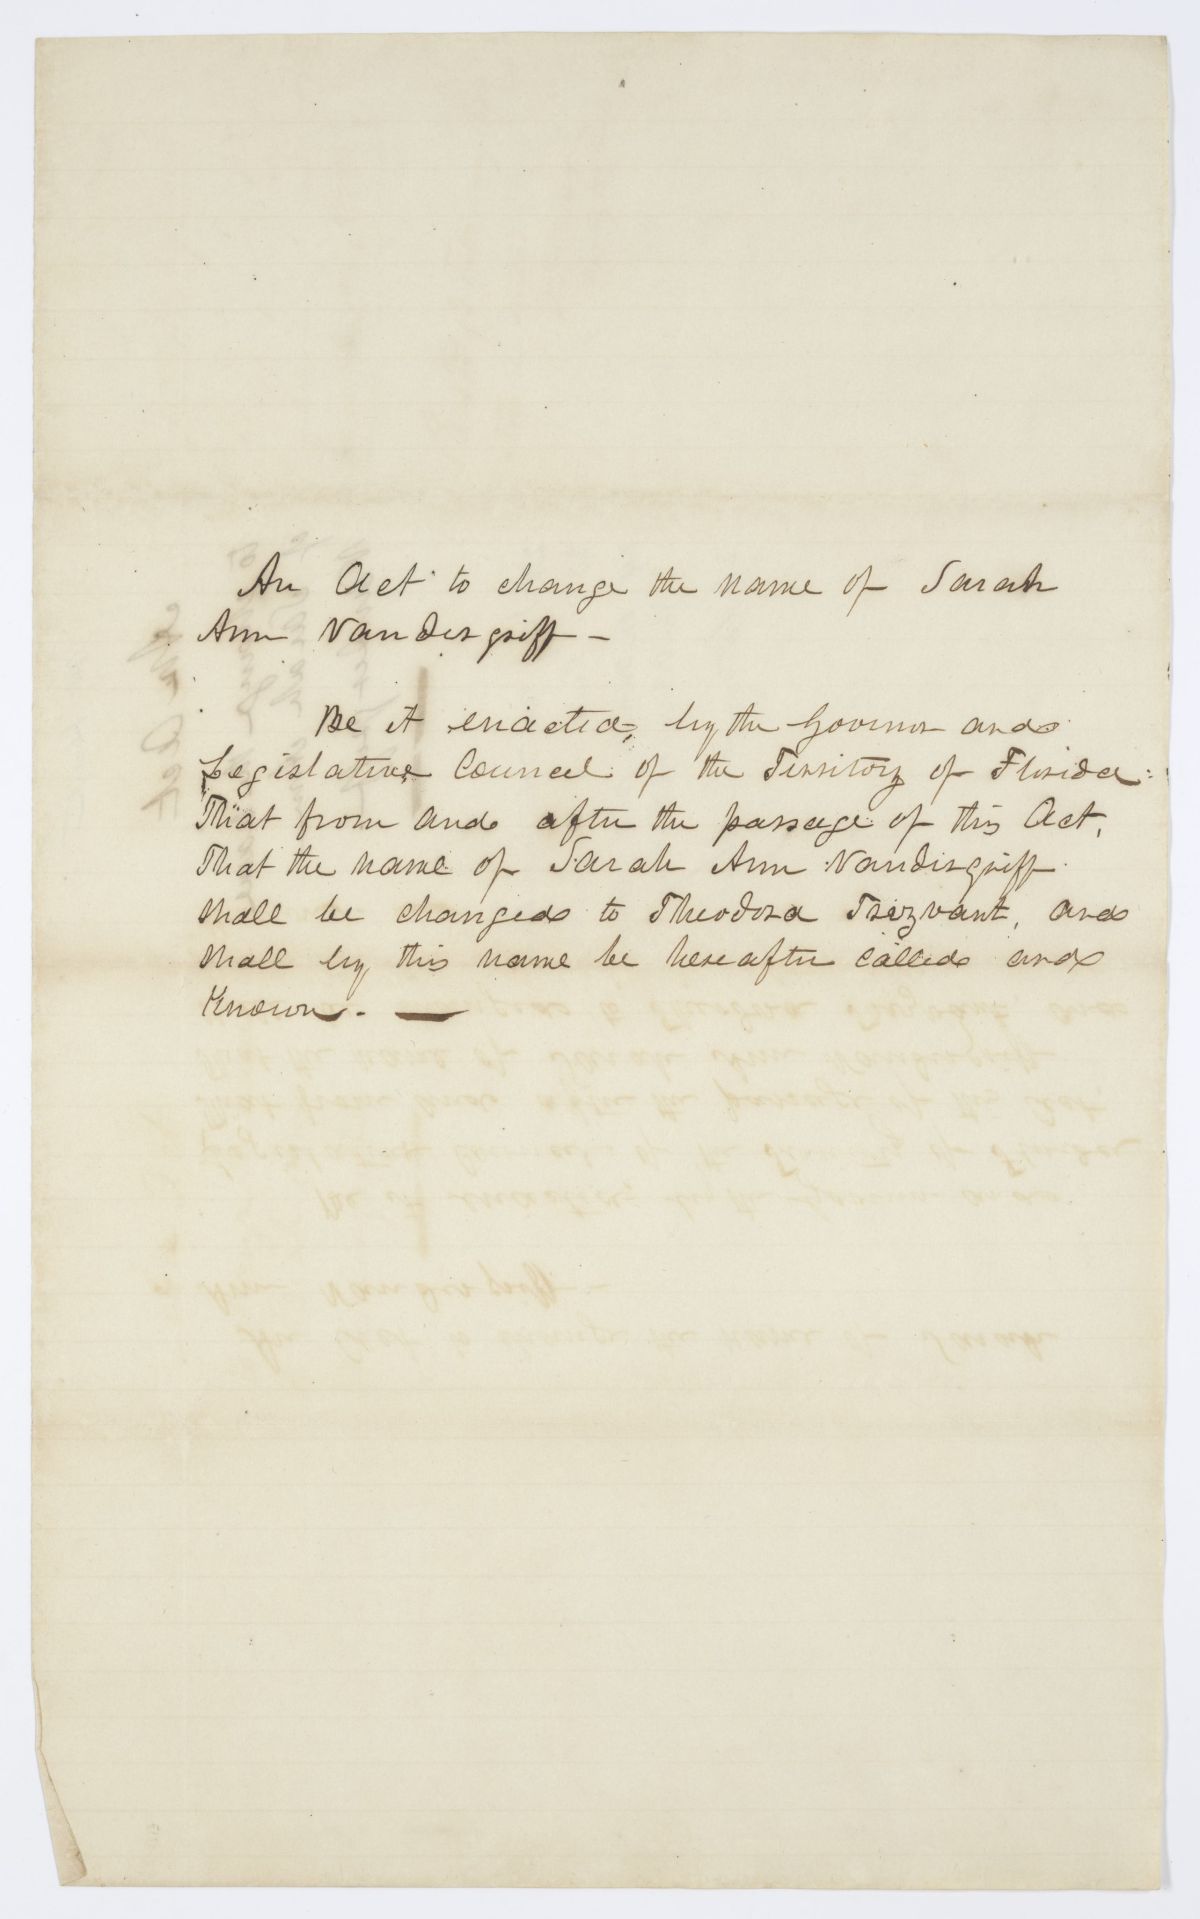 An Act to change the name of Sarah
Ann Vandergriff –
Be it enacted, by the Governor and
Legislative Council of the Territory of Florida:
That from and after the passage of this Act,
That the name of Sarah Ann Vandergriff
shall be changed to Theodora Trezvant, and
shall by this name be hereafter called and
Known. —